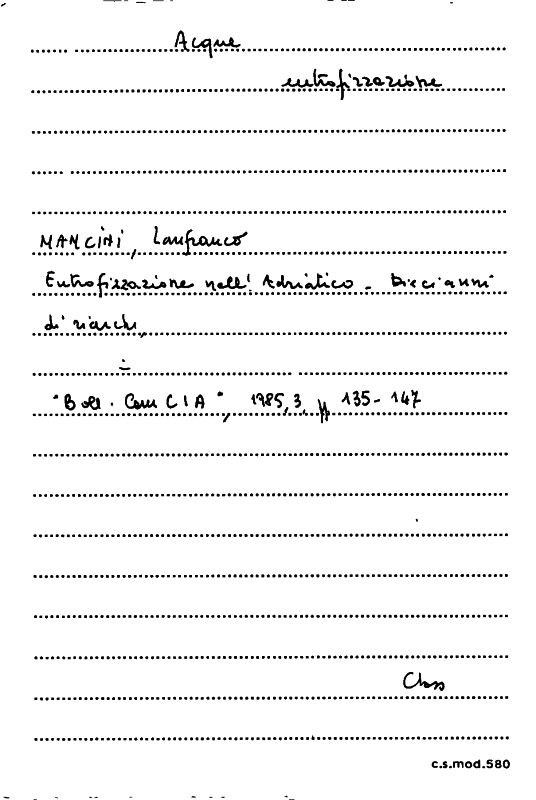 Acque
eutrofizzazione
MANCINI, Lanfranco
Eutrofizzazione nell'Adriatico - Dieci anni
di rischi,
in
"Boll. Com CIA", 1985, 3, pp 135-147
c.s.mod.580